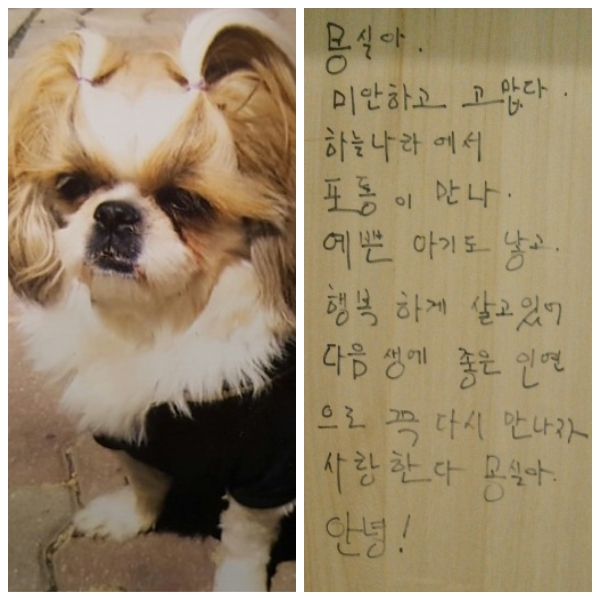 몽실아.
미안하고 고맙다.
하늘나라에서
포통이 만나.
예쁜 아기도 낳고.
행복하게 살고있어
다음 생에 좋은 인연
으로 꼭 다시 만나자
사랑한다 몽실아.
안녕!